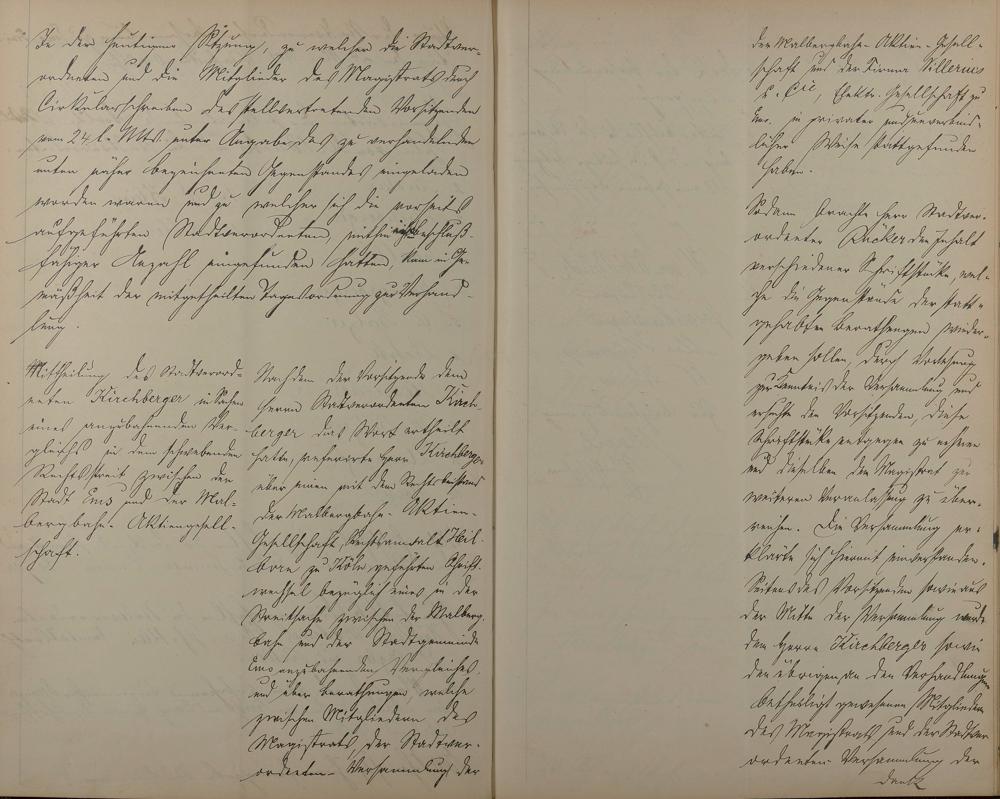 In der heutigen Sitzung, zu welcher die Stadtver-
ordneten und die Mitglieder des Magistrats durch
Cirkularschreiben des stellvertretenden Vorsitzenden
vom 24. l. Mts. unter Angabe des zu verhandelnden
unten näher bezeichneten Gegenstandes eingeladen
worden waren und zu welcher sich die vorseits
aufgeführten Stadtverordneten, mithin in beschluß-
fähiger Anzahl eingefunden hatten, kam in Ge-
mäßheit der mitgetheilten Tagesordnung zur Verhand-
lung.
Mittheilung des Stadtverord-
neten Kirchberger in Sachen
eines anzubahnenden Ver-
gleichs in dem schwebenden
Rechtsstreit zwischen der
Stadt Ems und der Mal-
bergbahn-Aktiengesell-
schaft.
Nachdem der Vorsitzende dem
Herrn Stadtverordneten Kirch-
berger das Wort ertheilt
hatte, referirte Herr Kirchberger
über einen mit dem Rechtsbeistand
der Malbergbahn-Aktien-
Gesellschaft, Rechtsanwalt Heil-
born zu Köln geführten Schrift-
wechsel bezüglich eines in der
Streitsache zwischen der Malberg-
bahn und der Stadtgemeinde
Ems anzubahnenden Vergleiches,
und über Berathungen, welche
zwischen Mitgliedern des
Magistrats, der Stadtver-
ordneten-Versammlung der
der Malbergbahn-Aktien-Gesell-
schaft und der Firma
u. Cie, Elektr. Gesellschaft zu
Ems, in privater und unverbind-
licher Weise stattgefunden
haben.
Sodann brachte Herr Stadtver-
ordneter Rücker den Inhalt
verschiedener Schriftstücke, wel-
che die Gegenstände der statt-
gehabten Berathungen wieder-
geben sollen, durch Vorlesung
zur Kenntnis der Versammlung und
ersuchte den Vorsitzenden, diese
Schriftstücke entgegen zu nehmen
und dieselben dem Magistrat zur
weiteren Veranlassung zu über-
reichen. Die Versammlung er-
klärte sich hiermit einverstanden.
Seitens des Vorsitzenden sowie aus
der Mitte der Versammlung wurde
den Herrn Kirchberger sowie
den übrigen, an den Verhandlungen
betheiligt gewesenen Mitgliedern
des Magistrats und der Stadtver-
ordneten-Versammlung der
Dank